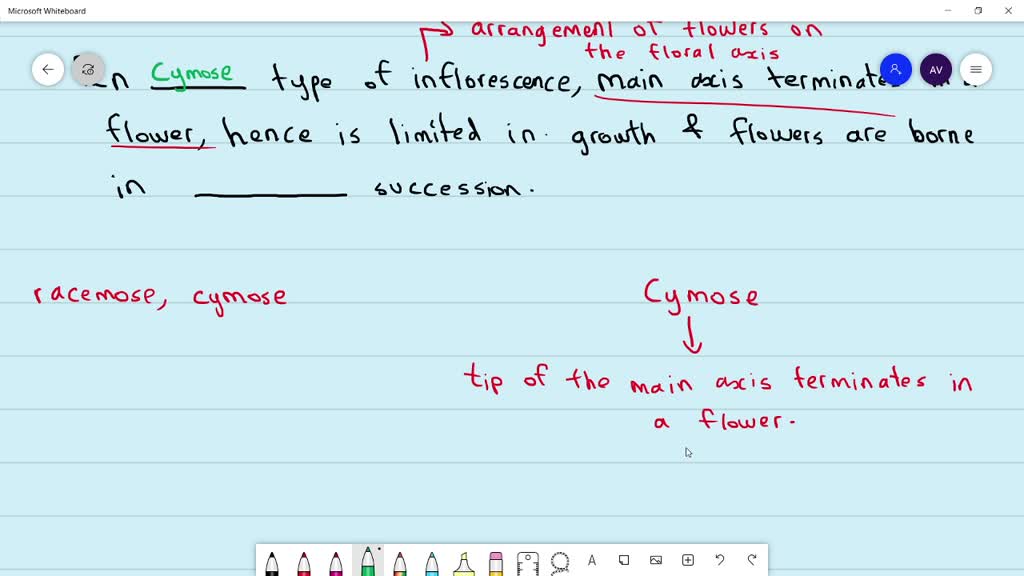 Microsoft Whiteboard
arrangement of flowers on
the floral axis
Cymose type of inflorescence, main axis terminates
AV
flower, hence is limited in growth & flowers are borne
in ________ succession.
racemose, cymose
Cymose
tip of the main axis terminates in
a flower.
A